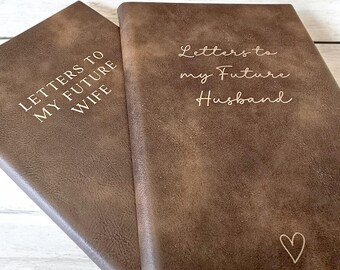 LETTERS TO
MY FUTURE
WIFE
Letters to
my Future
Husband